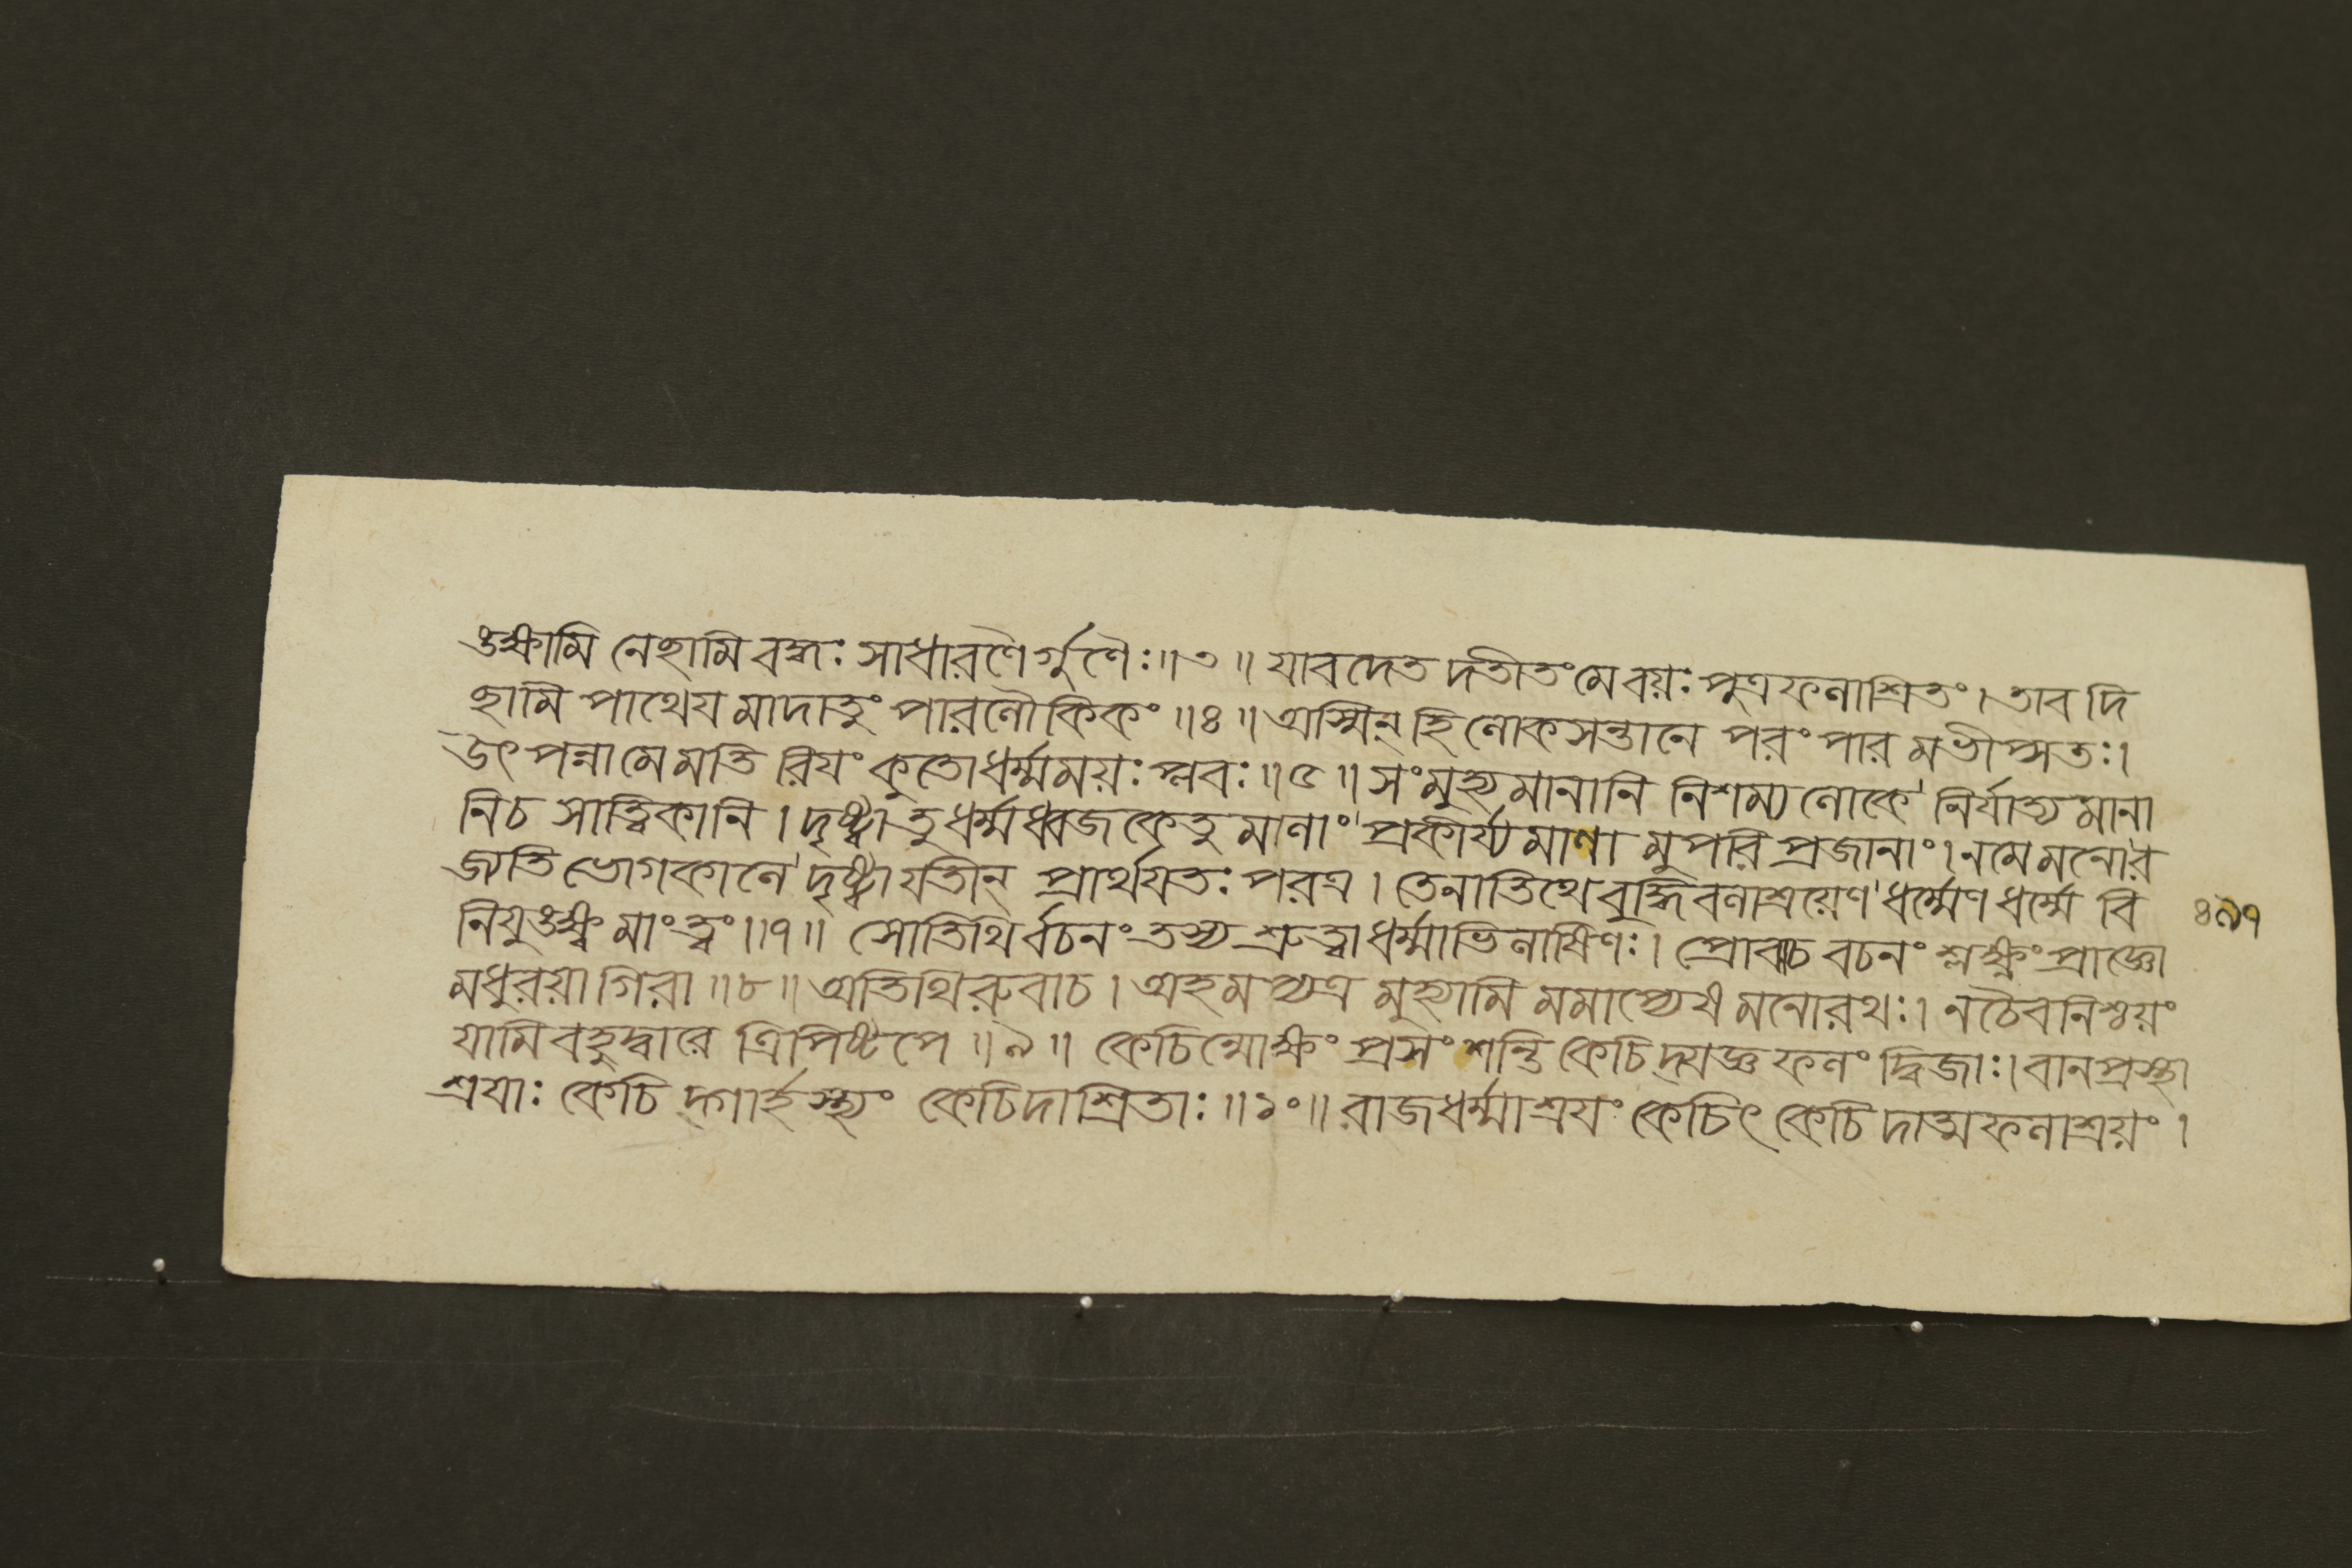 ঙক্ষামি নেছামি বদ্ধঃ সাধারণৈর্গুণৈঃ॥৩॥ যাবদেত দতীতং মে বয়ঃ পুত্রফলাশ্রিতং। তাব দি
ছামি পাথেয মাদাতুং পারলৌকিকং॥৪॥ অস্মিন্ হি লোকসন্তানে পরং পার মভীপ্সতঃ।
উৎ পন্নামে মতি রিযং কুতোধর্ম্মময়ঃ প্লবঃ॥৫॥ সংমুহ্য মানানি নিশম্য লোকে নির্যাত্য মানা
নিচ সাত্ত্বিকানি। দৃষ্ট্বা তু ধর্ম্মধ্বজকেতু মালাং প্রকীর্য্য মাণা মুপরি প্রজানাং। নমে মনোর
জ্যতি ভোগকালে দৃষ্ট্বা যতীন্ প্রার্থযতঃ পরত্র। তেনাতিথে বুদ্ধি বলাশ্রয়েণ ধর্ম্মেণ ধর্ম্মে বি
নিযুঙক্ষ্ব মাং ত্বং॥৭॥ সোতিথি র্বচনং তস্য শ্রুত্বা ধর্ম্মাভিলাষিণঃ। প্রোবাচ বচনং শ্লক্ষ্ণং প্রাজ্ঞো
মধুরয়া গিরা॥৮॥ অতিথিরুবাচ। অহমপ্যত্র মুহ্যামি মমাপ্যেষ মনোরথঃ। নচৈবনিশ্চয়ং
যামি বহুদ্বারে ত্রিপিষ্টপে॥৯॥ কেচিন্মোক্ষং প্রসংশন্তি কেচিদ্যজ্ঞ ফলং দ্বিজাঃ। বানপ্রস্থা
শ্রযাঃ কেচি দ্গার্হস্থ্যং কেচিদাশ্রিতাঃ॥১০॥ রাজধর্ম্মাশ্রযং কেচিৎ কেচি দাত্মফলাশ্রয়ং।
৪৯৭